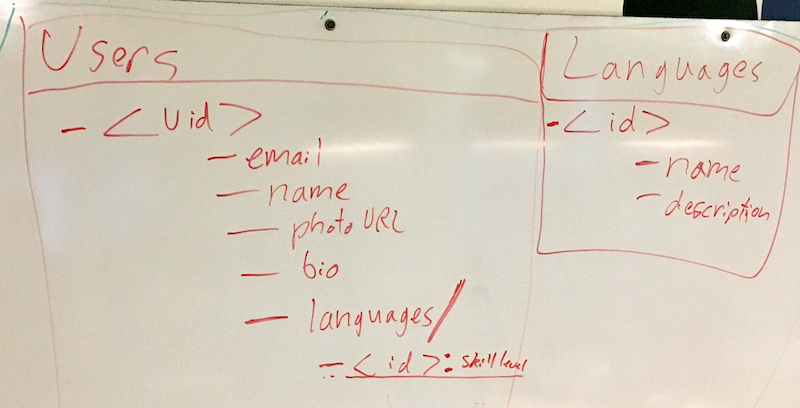 Users
- <Uid>
- email
- name
- photoURL
- bio
- languages/
- <id>: skill level
Languages
- <id>
- name
- description